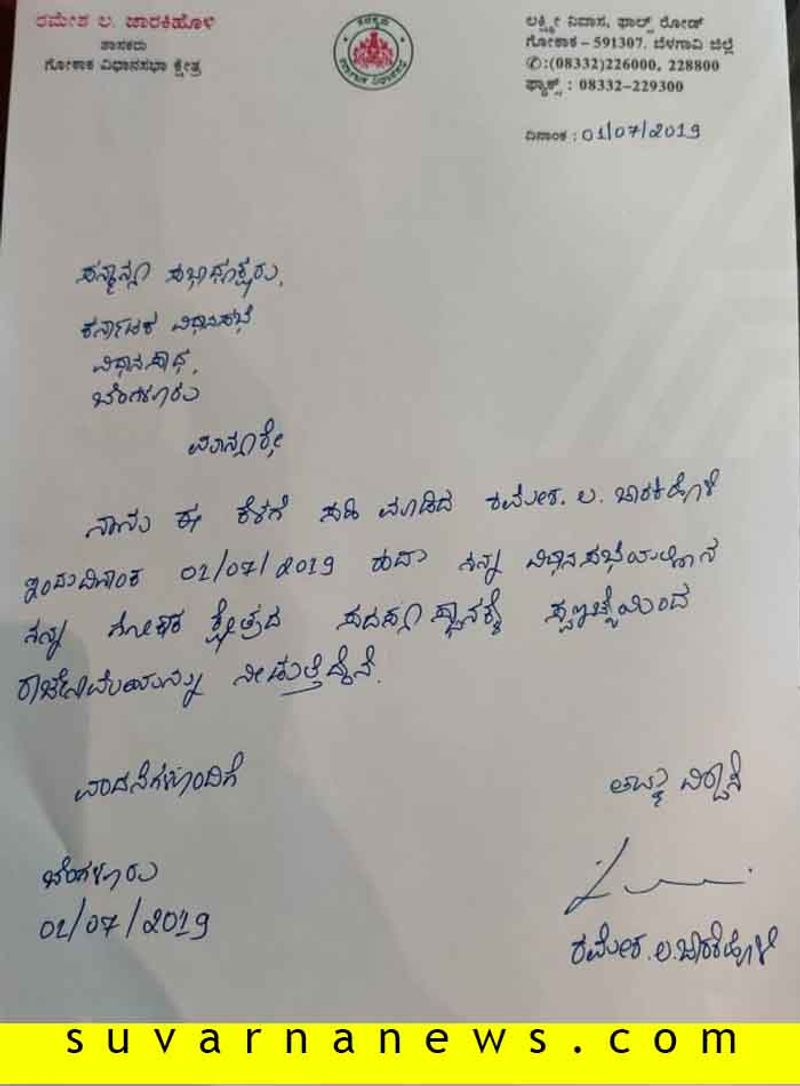 ರಮೇಶ ಲ. ಜಾರಕಿಹೊಳಿ
ಶಾಸಕರು
ಗೋಕಾಕ ವಿಧಾನಸಭಾ ಕ್ಷೇತ್ರ
ಲಕ್ಷ್ಮೀ ನಿವಾಸ, ಫಾಲ್ಸ್ ರೋಡ್
ಗೋಕಾಕ - 591307. ಬೆಳಗಾವಿ ಜಿಲ್ಲೆ
✆:(08332)226000, 228800
ಫ್ಯಾಕ್ಸ್ : 08332-229300
ದಿನಾಂಕ : 01/07/2019
ಸನ್ಮಾನ್ಯ ಸಭಾಧ್ಯಕ್ಷರು,
ಕರ್ನಾಟಕ ವಿಧಾನಸಭೆ
ವಿಧಾನಸೌಧ,
ಬೆಂಗಳೂರು
ಮಾನ್ಯರೇ
ನಾನು ಈ ಕೆಳಗೆ ಸಹಿ ಮಾಡಿದ ರಮೇಶ. ಲ. ಜಾರಕಿಹೊಳಿ
ಇಂದು ದಿನಾಂಕ 01/07/2019 ರಂದು ನನ್ನ
ನನ್ನ ಗೋಕಾಕ ಕ್ಷೇತ್ರದ ಸದಸ್ಯ ಸ್ಥಾನಕ್ಕೆ ಸ್ವಇಚ್ಛೆಯಿಂದ
ರಾಜೀನಾಮೆಯನ್ನು ನೀಡುತ್ತಿದ್ದೇನೆ.
ವಂದನೆಗಳೊಂದಿಗೆ
ತಮ್ಮ ವಿಶ್ವಾಸಿ
ಬೆಂಗಳೂರು
01/07/2019
ರಮೇಶ. ಲ. ಜಾರಕಿಹೊಳಿ
suvarnanews.com